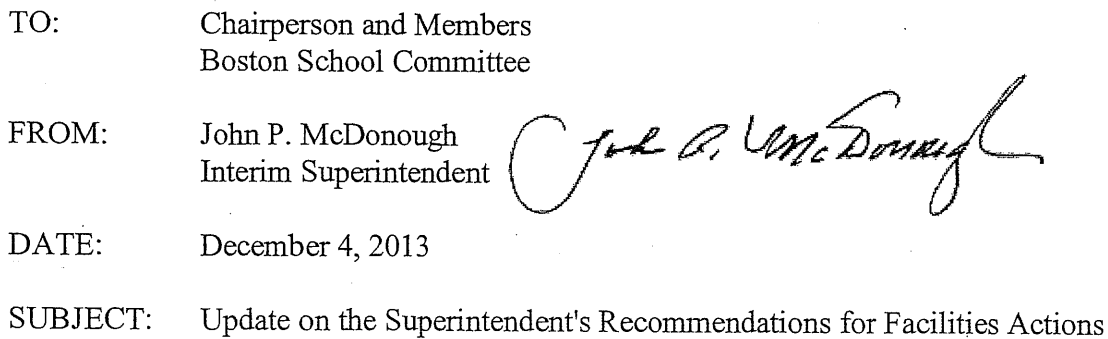 TO: Chairperson and Members
Boston School Committee
FROM: John P. McDonough
Interim Superintendent
John P. McDonough
DATE: December 4, 2013
SUBJECT: Update on the Superintendent's Recommendations for Facilities Actions